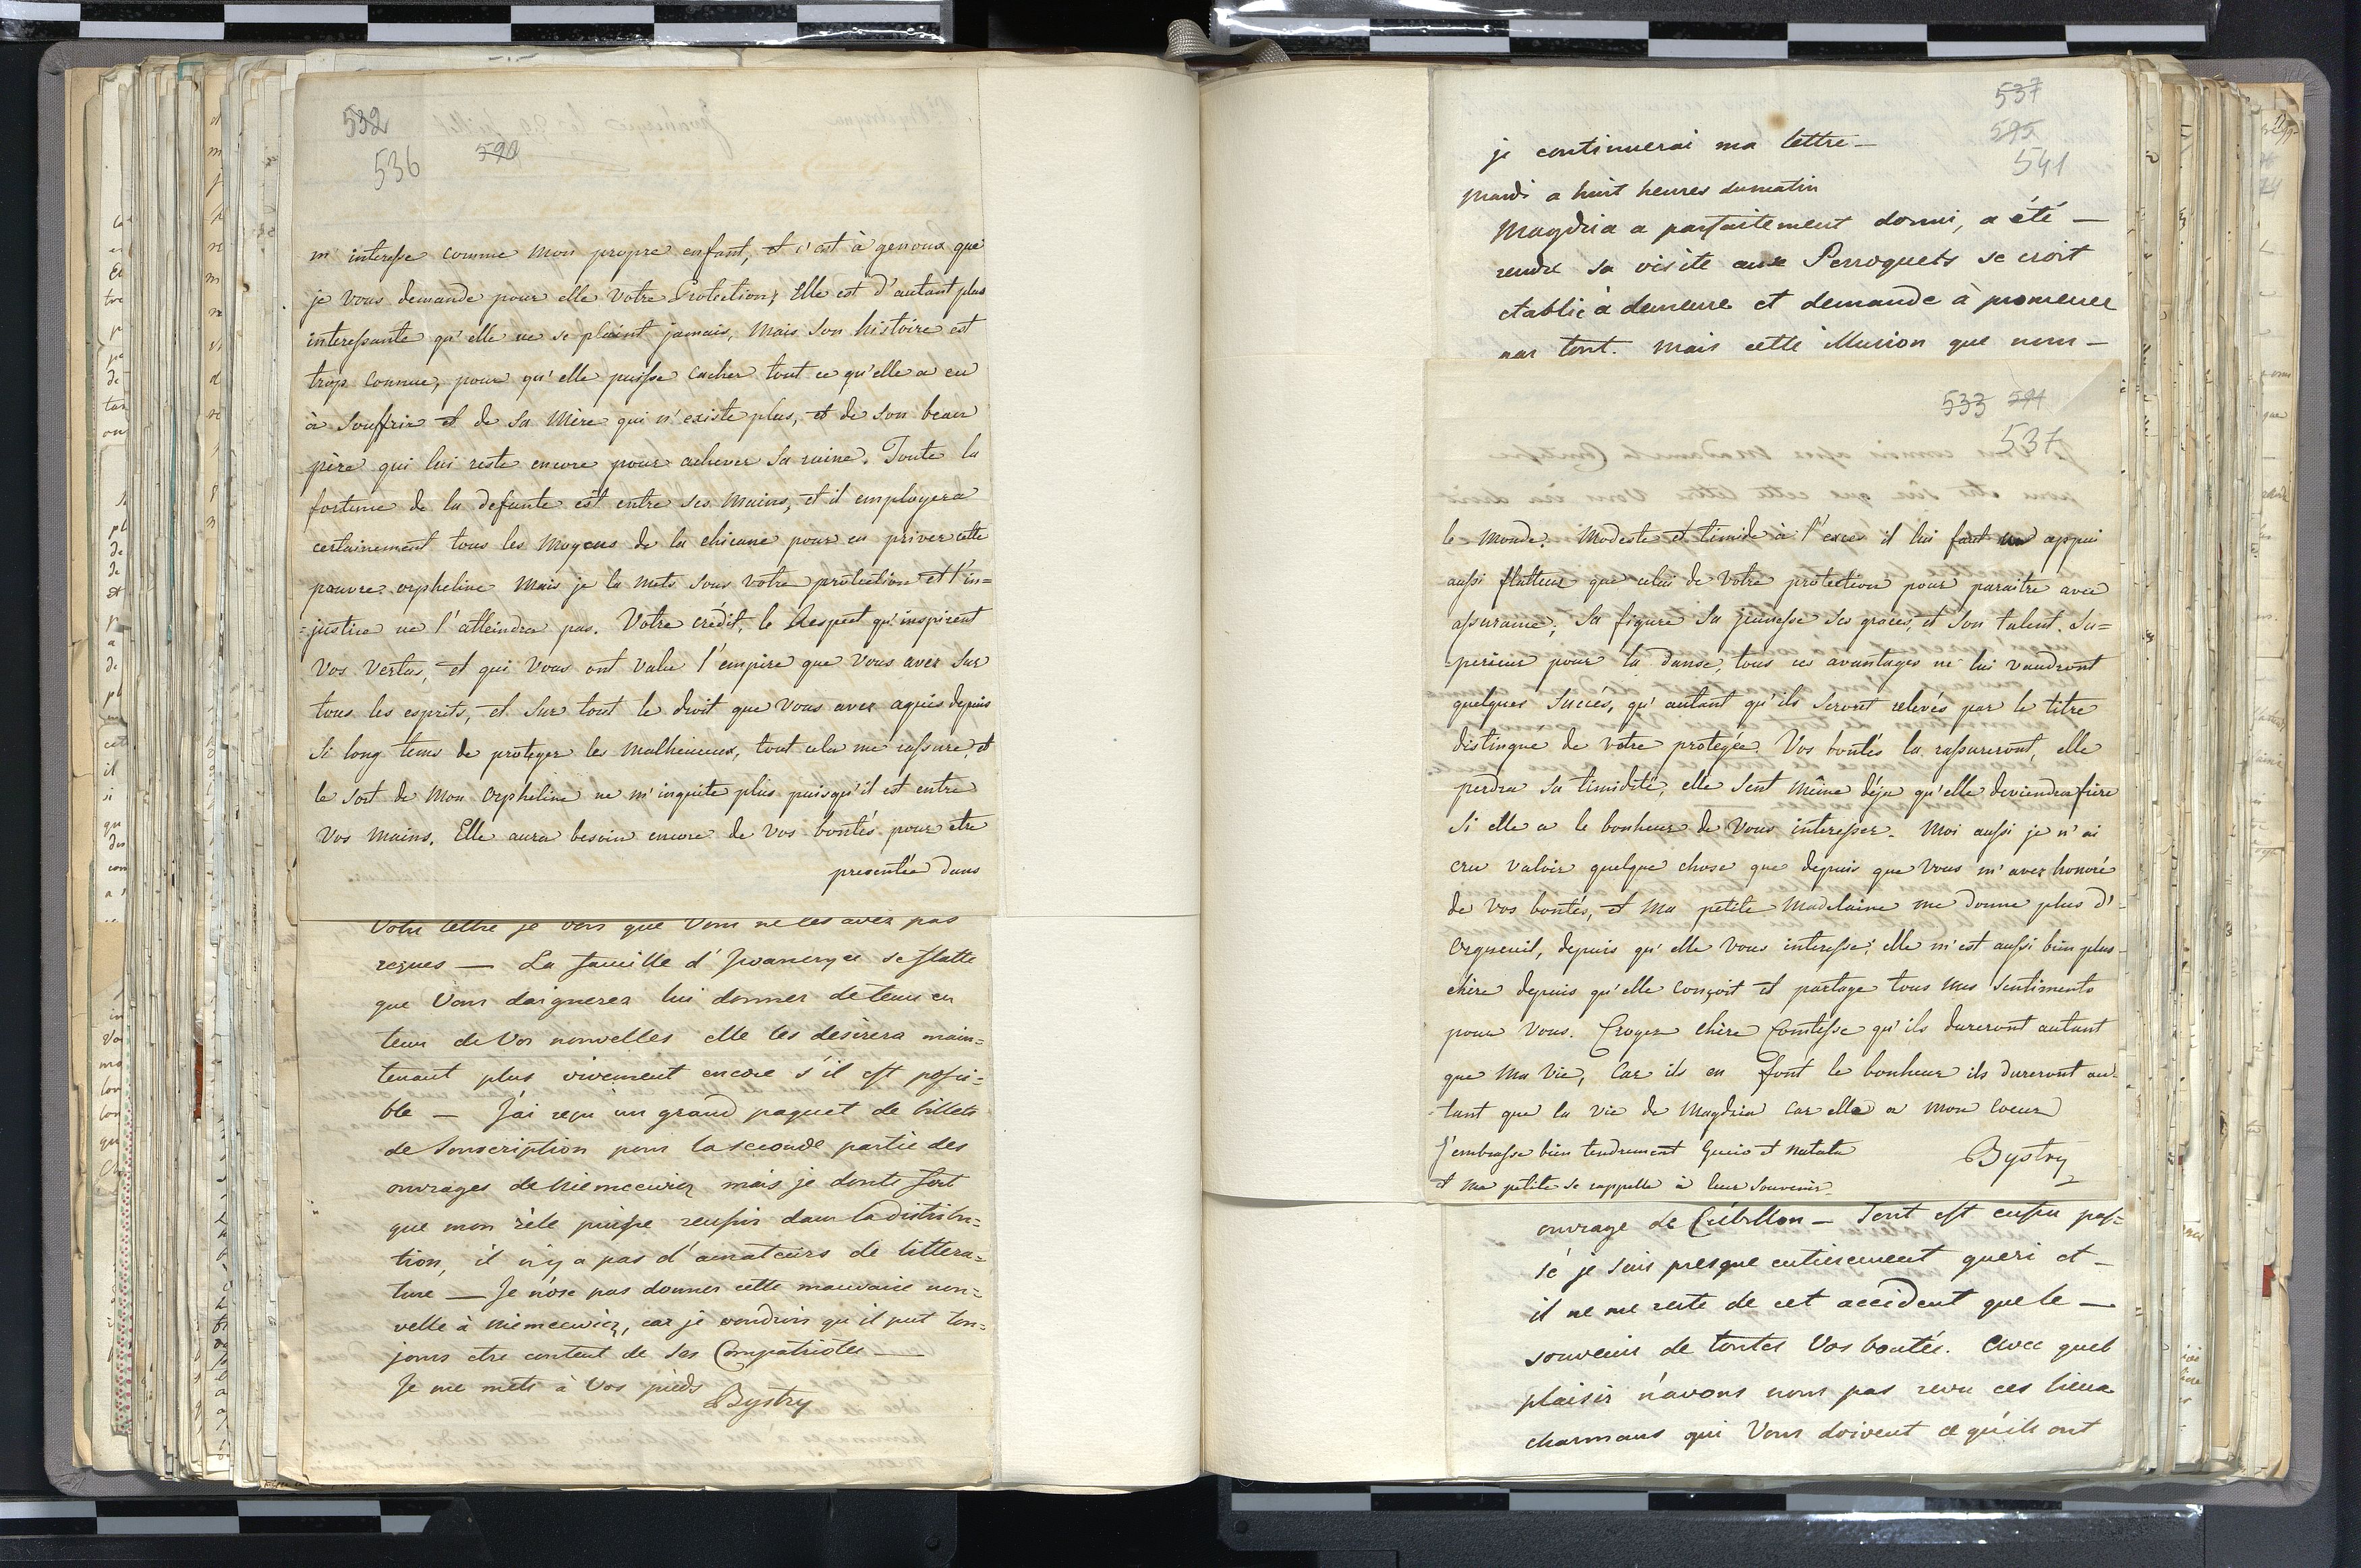 532
536 590
m'interesse comme mon propre enfant, et c'est à genoux que
je vous demande pour elle votre Protection; Elle est d'autant plus
interessante qu'elle ne se plaint jamais, mais son histoire est
trop connue, pour qu'elle puisse cacher tout ce qu'elle a eu
à souffrir et de sa Mère qui n'existe plus, et de son beau
père qui lui reste encore pour achever sa ruine. Toute la
fortune de la defunte est entre ses mains, et il employera
certainement tous les moyens de la chicane pour en priver cette
pauvre orpheline mais je la mets sous votre protection et l'in=
=justice ne l'atteindra pas. Votre crédit, le Respect qu'inspirent
vos vertus, et qui vous ont valu l'empire que vous avez sur
tous les esprits, et sur tout le droit que vous avez aquis depuis
si long tems de proteger les malheureux, tout cela me rassure, et
le sort de mon Orpheline ne m'inquite plus puisqu'il est entre
vos mains. Elle aura besoin encore de vos bontés pour etre
presentée dans
Votre lettre je vois que Vous ne les avez pas
reçues — La famille d'Iwanczyce se flatte
que Vous daignerez lui donner de tems en
tems de Vos nouvelles elle les desirera main=
tenant plus vivement encore s'il est possi=
ble — J'ai reçu un grand paquet de billets
de Souscription pour la seconde partie des
ouvrages de Niemcewicz mais je doute fort
que mon zèle puisse reussir dans la distribu=
tion, il n'y a pas d'amateurs de littera=
ture — Je n'ose pas donner cette mauvaise nou=
velle à Niemcewicz, car je voudrois qu'il put tou=
jours etre content de ses Compatriotes —
Je me mets à Vos pieds Bystry
537
595
541
je continuerai ma lettre —
Mardi a huit heures du matin
Magdzia a parfaitement dormi, a été —
rendre sa visite aux Perroquets se croit
etablie à demeure et demande à promener
par tout. Mais cette illusion que nous —
533 591
537
le Monde. Modeste et timide à l'exces il lui faut un appui
aussi flatteur que celui de votre protection pour paraitre avec
assurance; Sa figure sa jeunesse ses graces, et son talent. Su=
=perieur pour la danse, tous ces avantages ne lui vaudront
quelques succés, qu'autant qu'ils seront relevés par le titre
distingue de votre protegée. Vos bontés la rassureront, elle
perdra sa timidité, elle sent même déja qu'elle deviendra fière
si elle a le bonheur de vous interesser. Moi aussi je n'ai
cru valoir quelque chose que depuis que vous m'avez honoré
de vos bontés, et ma petite Madelaine me donne plus d'
orgueuil, depuis qu'elle vous interesse; elle m'est aussi bien plus
chère depuis qu'elle conçoit et partage tous mes sentiments
pour vous. Croyez chère Comtesse qu'ils dureront autant
que ma vie, car ils en font le bonheur ils dureront au=
=tant que la vie de Magdzia car elle a mon coeur
J'embrasse bien tendrement Gucio et Natalie Bystry
et ma petite se rappelle à leur souvenir.
ouvrage de Crébillon — Tout est enfin pas=
sé je suis presque entierement gueri et —
il ne me reste de cet accident que le —
souvenir de toutes Vos bontés. Avec quel
plaisir n'avons nous pas revu ces lieux
charmans qui Vous doivent ce qu'ils ont